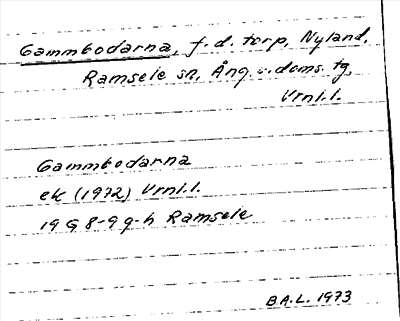 Gammbodarna, f.d. torp, Nyland,
Ramsele sn, Ång. s. doms. tg,
Vrnl.l.
Gammbodarna
ek (1972) Vrnl.l.
19 G 8-9 g-h Ramsele
B.A.L. 1973